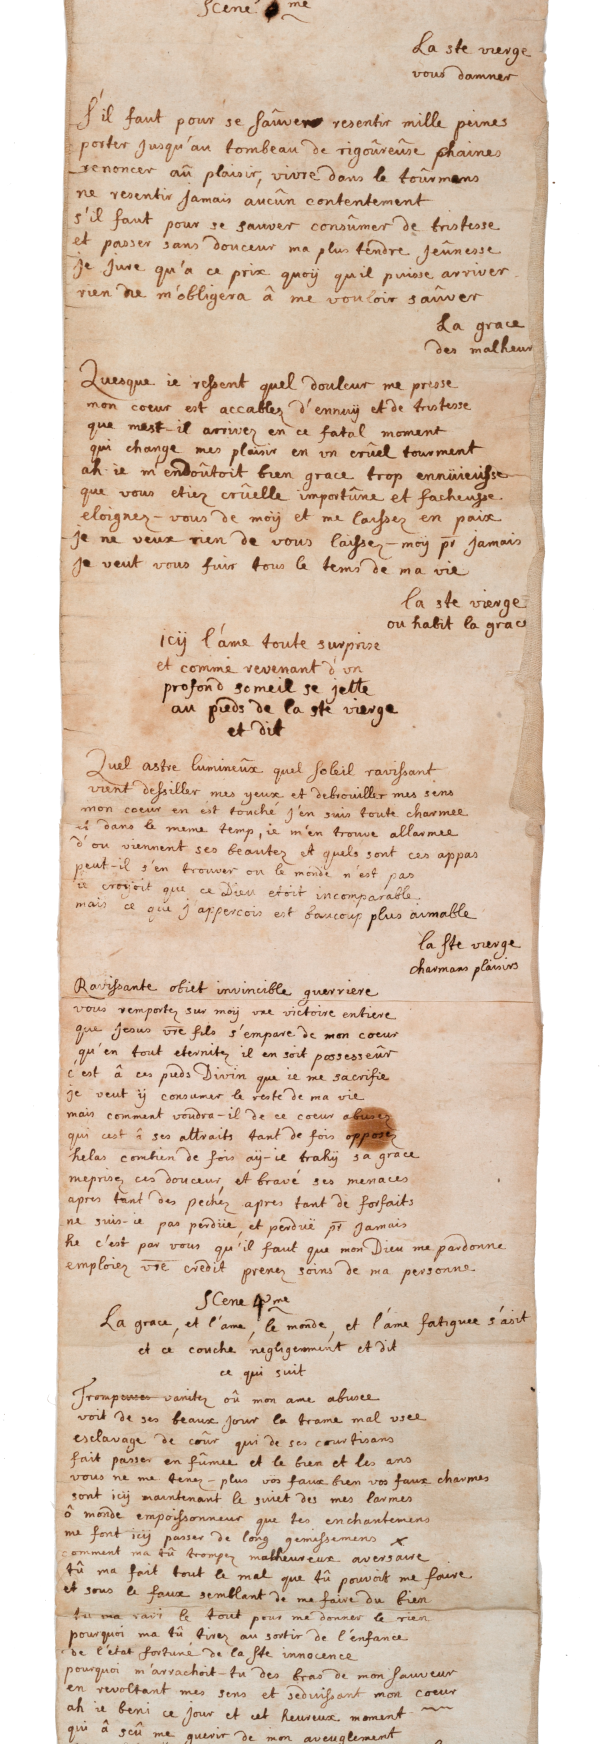 Scene me
La ste vierge
vous damner
S'il faut pour se saûver resentir mille peines
porter jusqu'au tombeau de rigoûreûse phaines
renoncer aû plaisir, vivre dans le toûrmens
ne resentir jamais aucûn contentement
s'il faut pour se sauver consûmer de tristesse
et passer sans douceur ma plus tendre jeûnesse
je jure qu'a ce prix quoÿ qu'il puisse arriver
rien ne m'obligera â me vouloir saûver
La grace
des malheur
Quesque ie ressent quel douleur me presse
mon coeur est accablez d'ennuÿ et de tristesse
que mest-il arrivez en ce fatal moment
qui change mes plaisir en vn crûel tourment
ah ie m'endoûtoit bien grace trop ennüieusse
que vous etiez crûelle importûne et facheusse
eloignez-vous de moÿ et me laissez en paix
je ne veux rien de vous laissez-moÿ pr jamais
je veut vous fuir tous le tems de ma vie
la ste vierge
ou habit la grace
icÿ l'âme toute surprise
et comme revenant d'vn
profond someil se jette
au pieds de la ste vierge
et dit
Quel astre lumineûx quel soleil ravissant
vient dessiller mes yeux et debrouiller mes sens
mon coeur en est touché j'en suis toute charmee
et dans le meme temp, ie m'en trouve allarmee
d'ou viennent ses beautez et quels sont ces appas
peut-il s'en trouver ou le monde n'est pas
ie croÿoit que ce Dieu etoit incomparable
mais ce que j'appercois est baucoup plus aimable
la ste vierge
charmans plaisirs
Ravissante obiet invincible guerriere
vous remportez sur moÿ vne victoire entiere
que Jesus vre fils s'empare de mon coeur
qu'en tout eternitez il en soit possesseûr
c'est â ces pieds Divin que ie me sacrifie
je veut ÿ consumer le reste de ma vie
mais comment voudra-il de ce coeur abusez
qui cest â ses attraits tant de fois opposez
helas combien de fois aÿ-ie trahÿ sa grace
meprisez ces douceur, et bravé ses menaces
apres tant des pechez apres tant de forfaits
ne suis-ie pas perdüe, et perduë pr jamais
he c'est par vous qu'il faut que mon Dieu me pardonne
emploiez vre credit prenez soins de ma personne
Scene 4me
La grace, et l'âme, le monde, et l'âme fatiguee s'asit
et ce couche negligenment et dit
ce qui suit
Trompeuses vanitez oû mon ame abusee
voit de ses beaux jour la trame mal vsee
esclavage de coûr qui de ses courtisans
fait passer en fûmee et le bien et les ans
vous ne me tenez-plus vos faux bien vos faux charmes
sont icÿ maintenant le suiet des mes larmes
ô monde empoissonneur que tes enchantemens
me font icÿ passer de long gemissemens x
comment ma tû trompez malheureux aversaire
tû ma fait tout le mal que tû pouvoit me faire
et sous le faux semblant de me faire du bien
tu ma ravi le tout pour me donner le rien
pourquoi ma tû tirez au sortir de l'enfance
de l'êtat fortuné de la ste innocence
pourquoi m'arrachoit-tu des bras de mon sauveur
en revoltant mes sens et seduissant mon coeur
ah ie beni ce jour et cet heureux moment
qui â scû me guerir de mon aveuglement